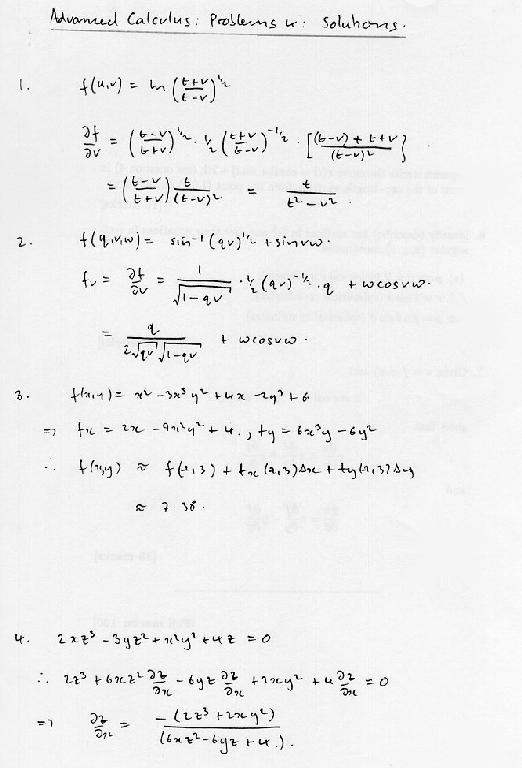 Advanced Calculus: Problems 4: Solutions.
1. f(u,v) = ln ((t+v)/(t-v))^{1/2}
∂f/∂v = ((t-v)/(t+v))^{1/2} · 1/2 ((t+v)/(t-v))^{-1/2} · [((t-v) + t+v)/(t-v)²]
= ((t-v)/(t+v)) t/(t-v)² = t/(t²-v²).
2. f(q,v,w) = sin⁻¹(qv)^{1/2} + sinvw.
f_v = ∂f/∂v = 1/√(1-qv) · 1/2 (qv)^{-1/2} · q + wcosvw.
= q/(2√qv √(1-qv)) + wcosvw.
3. f(x,y) = x² - 3x³y² + 4x - 2y³ + 6
=> fx = 2x - 9x²y² + 4., fy = 6x³y - 6y²
∴ f(x,y) ≈ f(2,3) + fx(2,3)Δx + fy(2,3)Δy
≈ 7 38.
4. 2xz³ - 3yz² + x²y² + 4z = 0
∴ 2z³ + 6xz² ∂z/∂x - 6yz ∂z/∂x + 2xy² + 4 ∂z/∂x = 0
=> ∂z/∂x = -(2z³ + 2xy²)/(6xz² - 6yz + 4.).